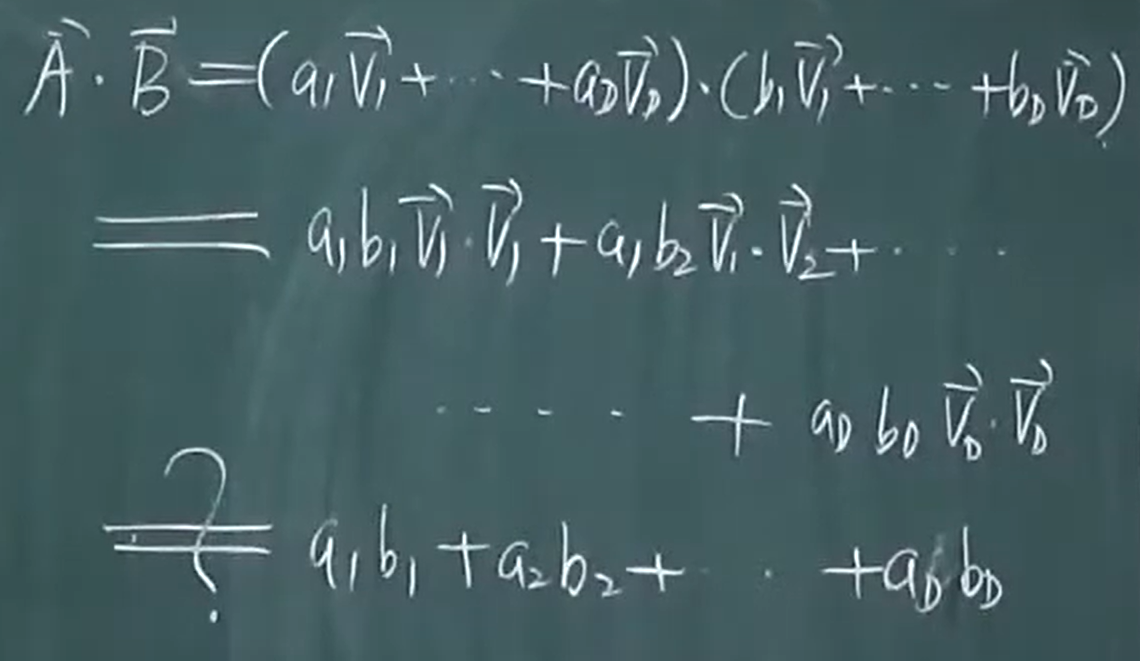 $\vec{A} \cdot \vec{B} = (a_1 \vec{V}_1 + \cdots + a_D \vec{V}_D) \cdot (b_1 \vec{V}_1 + \cdots + b_D \vec{V}_D)$
$= a_1 b_1 \vec{V}_1 \cdot \vec{V}_1 + a_1 b_2 \vec{V}_1 \cdot \vec{V}_2 + \cdots$
$\cdots\cdots + a_D b_D \vec{V}_D \cdot \vec{V}_D$
$\stackrel{?}{=} a_1 b_1 + a_2 b_2 + \cdots + a_D b_D$